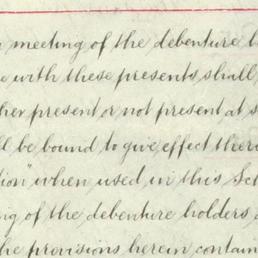 meeting of the debenture
with these presents shall
present or not present at
be bound to give effect
when used in this
of the debenture holders
the provisions herein